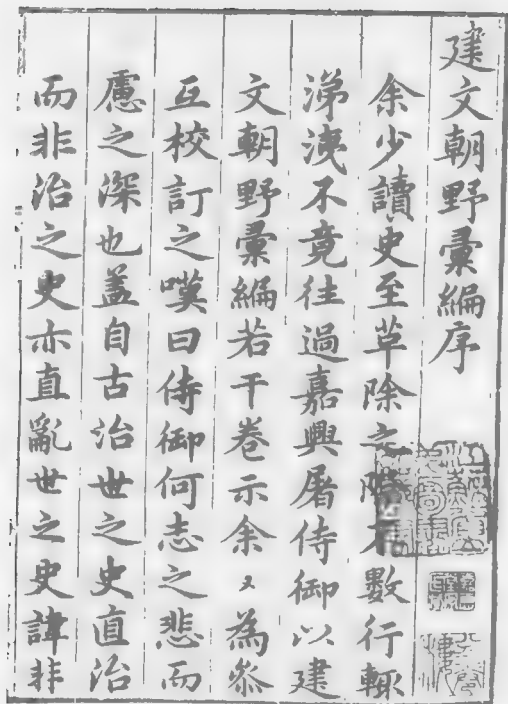 建文朝野彙編序
余少讀史至草除之際不數行輒
涕洟不竟往過嘉興屠侍御以建
文朝野彙編若干卷示余〻為叅
互校訂之嘆曰侍御何志之悲而
慮之深也盖自古治世之史直治
而非治之史亦直亂世之史諱非